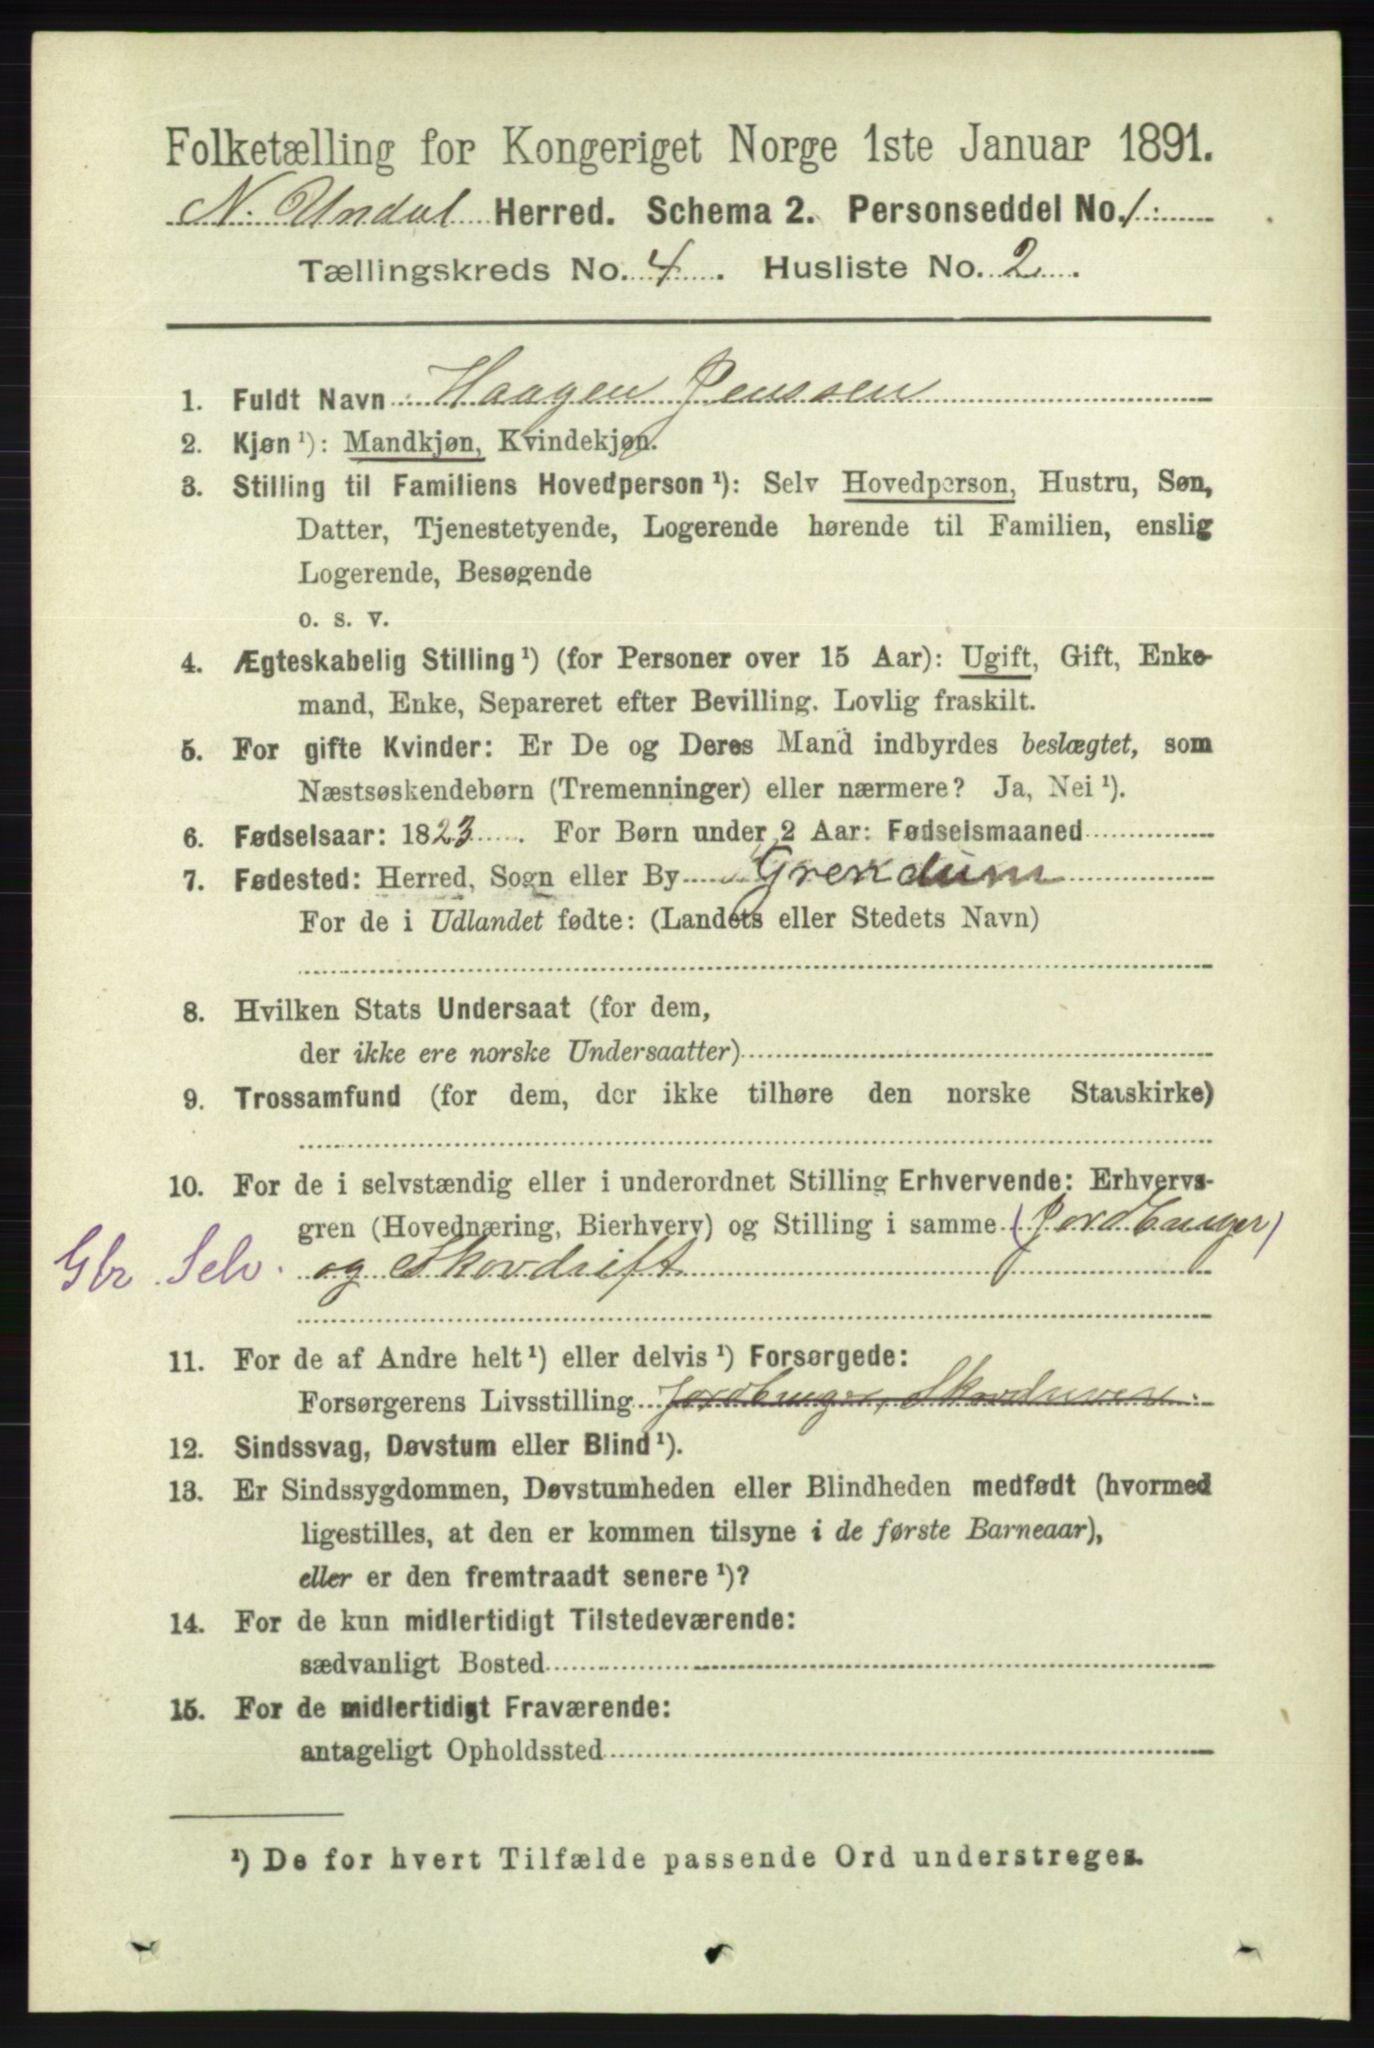 Folketælling for Kongeriget Norge 1ste Januar 1891.
N. Undal Herred. Schema 2. Personseddel No. 1.
Tællingskreds No. 4. Husliste No. 2.
1. Fuldt Navn Haagen Jenssen
2. Kjøn ¹): Mandkjøn, Kvindekjøn.
3. Stilling til Familiens Hovedperson ¹): Selv Hovedperson, Hustru, Søn,
Datter, Tjenestetyende, Logerende hørende til Familien, enslig
Logerende, Besøgende
o. s. v.
4. Ægteskabelig Stilling ¹) (for Personer over 15 Aar): Ugift, Gift, Enke-
mand, Enke, Separeret efter Bevilling. Lovlig fraskilt.
5. For gifte Kvinder: Er De og Deres Mand indbyrdes beslægtet, som
Næstsøskendebørn (Tremenninger) eller nærmere? Ja, Nei ¹).
6. Fødselsaar: 1823. For Børn under 2 Aar: Fødselsmaaned
7. Fødested: Herred, Sogn eller By Grendum
For de i Udlandet fødte: (Landets eller Stedets Navn)
8. Hvilken Stats Undersaat (for dem,
der ikke ere norske Undersaatter)
9. Trossamfund (for dem, der ikke tilhøre den norske Statskirke)
10. For de i selvstændig eller i underordnet Stilling Erhvervende: Erhvervs-
gren (Hovednæring, Bierhverv) og Stilling i samme (Jordbruger)
Gbr Selv. og Skovdrift
11. For de af Andre helt ¹) eller delvis ¹) Forsørgede:
Forsørgerens Livsstilling Jordbruger,
12. Sindssvag, Døvstum eller Blind ¹).
13. Er Sindssygdommen, Døvstumheden eller Blindheden medfødt (hvormed
ligestilles, at den er kommen tilsyne i de første Barneaar),
eller er den fremtraadt senere ¹)?
14. For de kun midlertidigt Tilstedeværende:
sædvanligt Bosted
15. For de midlertidigt Fraværende:
antageligt Opholdssted
¹) De for hvert Tilfælde passende Ord understreges.